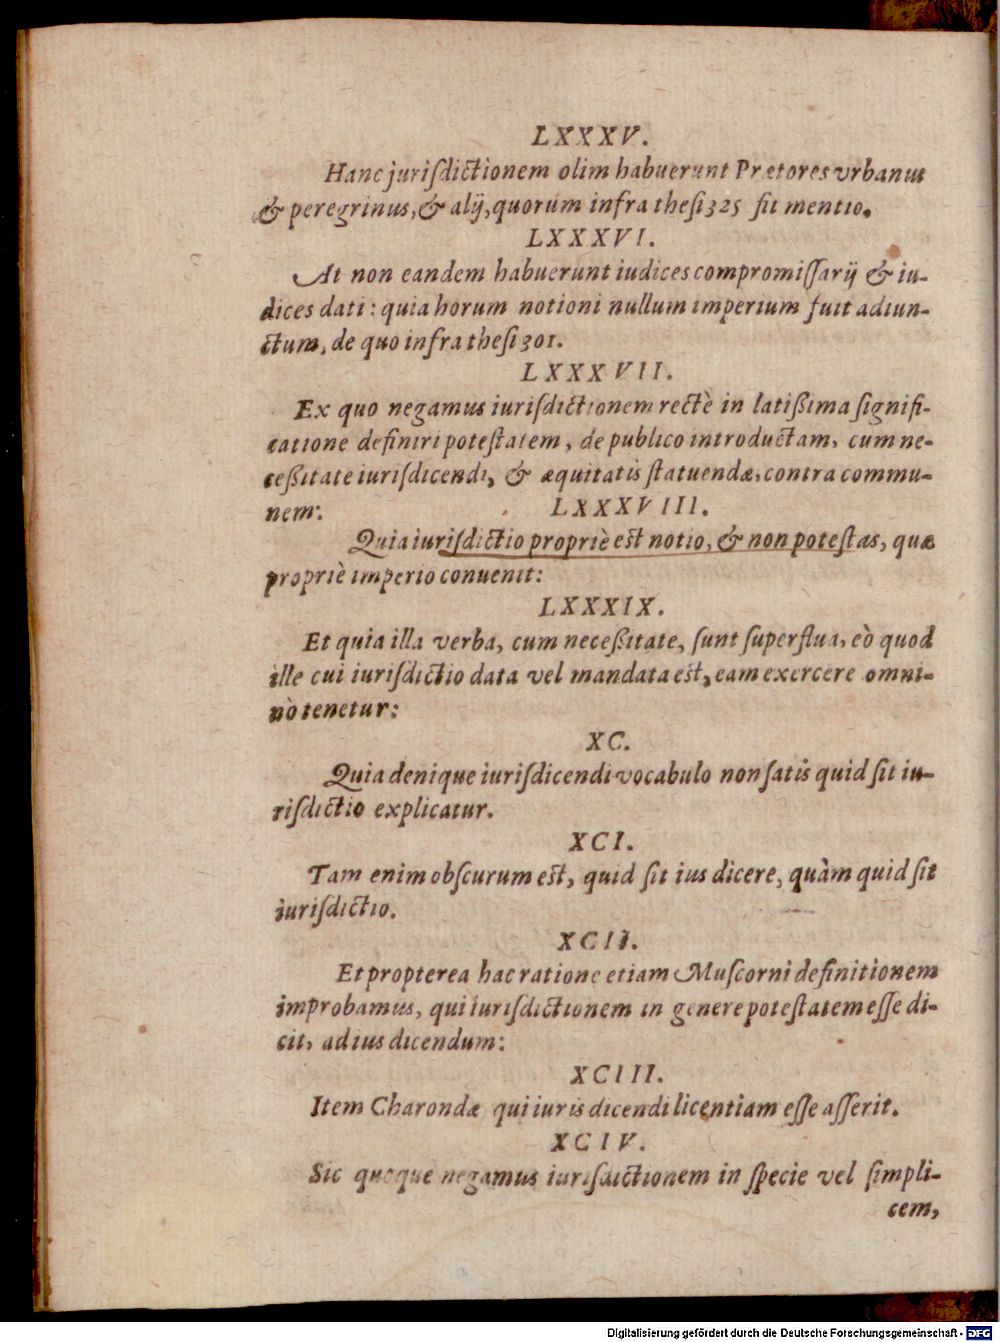 LXXXV.
Hanc juriſdictionem olim habuerunt Prætores vrbanus
& peregrinus, & alij, quorum infra theſi 325 fit mentio.
LXXXVI.
At non eandem habuerunt iudices compromiſſarij & iu-
dices dati: quia horum notioni nullum imperium fuit adiun-
ctum, de quo infra theſi 301.
LXXXVII.
Ex quo negamus iuriſdictionem rectè in latißima ſignifi-
catione definiri poteſtatem, de publico introductam, cum ne-
ceßitate iuriſdicendi, & æquitatis ſtatuendæ, contra commu-
nem:
LXXXVIII.
Quia iuriſdictio propriè est notio, & non poteſtas, quæ
propriè imperio conuenit:
LXXXIX.
Et quia illa verba, cum neceßitate, ſunt ſuperflua, eò quod
ille cui iuriſdictio data vel mandata est, eam exercere omni-
nò tenetur:
XC.
Quia denique iuriſdicendi vocabulo non ſatis quid ſit iu-
riſdictio explicatur.
XCI.
Tam enim obſcurum est, quid ſit ius dicere, quàm quid ſit
iuriſdictio.
XCII.
Et propterea hac ratione etiam Muſcorni definitionem
improbamus, qui iuriſdictionem in genere poteſtatem eſſe di-
cit, ad ius dicendum:
XCIII.
Item Charondæ qui iuris dicendi licentiam eſſe aſſerit.
XCIV.
Sic quoque negamus iuriſdictionem in ſpecie vel ſimpli-
cem,
Digitalisierung gefördert durch die Deutsche Forschungsgemeinschaft - DFG